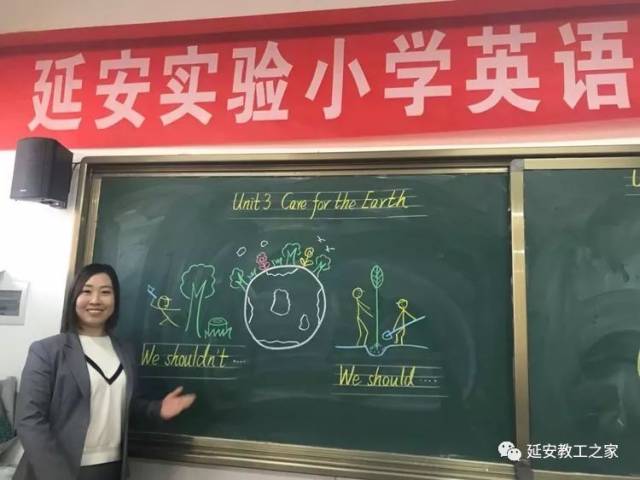 延安实验小学英语
Unit 3 Care for the Earth
We shouldn't ....
We should ....
延安教工之家